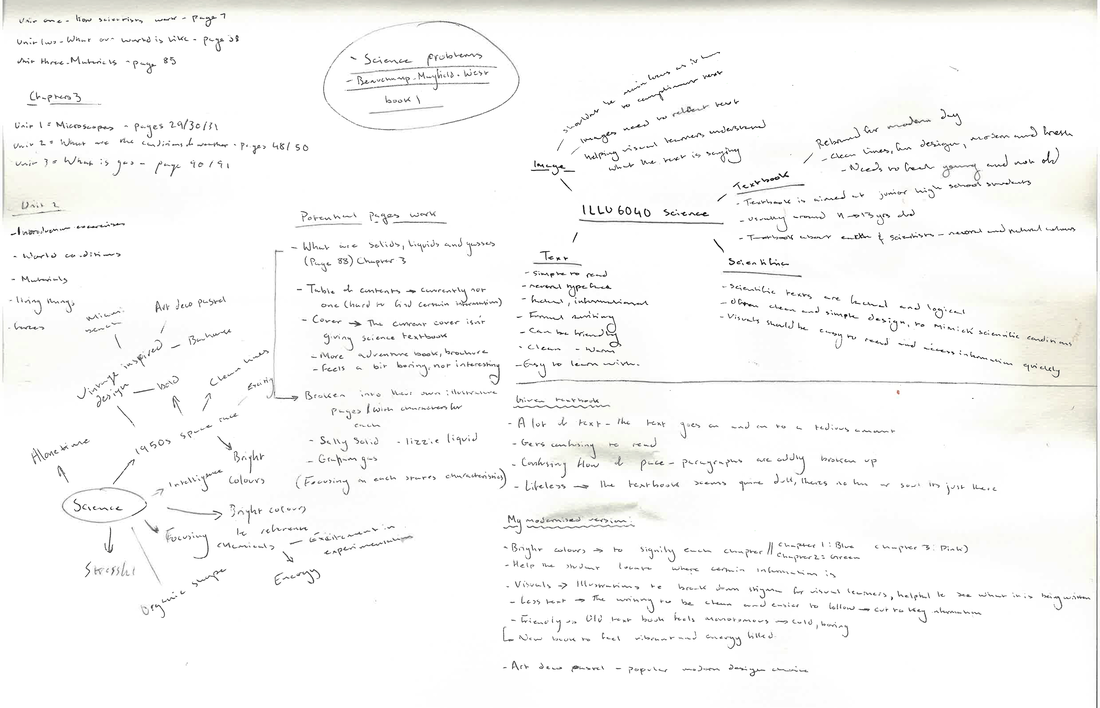 Unit one - How scientists work - page 7
Unit two - What our world is like - page 38
Unit three - Materials - page 85
Chapters 3
Unit 1 = Microscopes - pages 29/30/31
Unit 2 = What are the conditions of weather - pages 48/50
Unit 3 = What is gas - page 90/91
Unit 2
- Introduction exercises
- World conditions
- Materials
- living things
- forces
- Science problems
- Beauchamp-Mayfield-West
book 1
Potential pages work
- What are solids, liquids and gasses
(Page 88) Chapter 3
- Table of contents → currently not
one (hard to find certain information)
- Cover → The current cover isn't
giving science textbook
- More adventure book, brochure
- Feels a bit boring, not interesting
→ Broken into their own illustrative
pages / with character for
each
- Sally Solid - lizzie liquid
- Graham gas
(Focusing on each states characteristics)
Science
Alone time
1950s space race
Vintage inspired
design
Art deco pastel
Bauhaus
bold
Clean lines
exciting
Bright
colours
Intelligence
Bright colours
to reference
chemicals
Excitement in
experimentation
Energy
Focusing
Stressful
Organic shape
ILLU6040 Science
Image
to compliment text
Images need to reflect text
helping visual learners understand
what the text is saying
Textbook
Rebrand for modern day
- Clean lines, fun design, modern and fresh
- Needs to feel young and not old
- Textbook is aimed at junior high school students
- usually around 11 → 13 yrs old
- Textbook about earth & scientists - neutral and natural colours
Text
- simple to read
- neutral typeface
- factual, informational
- Formal writing
- Can be friendly
- Clean - Warm
- Easy to learn with.
Scientific
- scientific texts are factual and logical
- Often clean and simple design, to Mimick scientific conditions
- Visuals should be easy to read and access information quickly
Given textbook
- A lot of text - the text goes on and on to a tedious amount
- Gets confusing to read
- Confusing flow of pace - paragraphs are oddly broken up
- Lifeless → the textbook seems quite dull, theres no fun or soul its just there
My modernised version:
- Bright colours → to signify each chapter // chapter 1: Blue chapter 3: Pink)
chapter 2: Green
- Help the student locate where certain information is
- Visuals → Illustrations to break down stigma for visual learners, helpful to see what it is being written
- Less text → The writing to be clean and easier to follow → cut to key information
- Friendly → Old text book feels monotonous → cold, boring
New book to feel vibrant and energy filled
- Art deco pastel - popular modern design choice